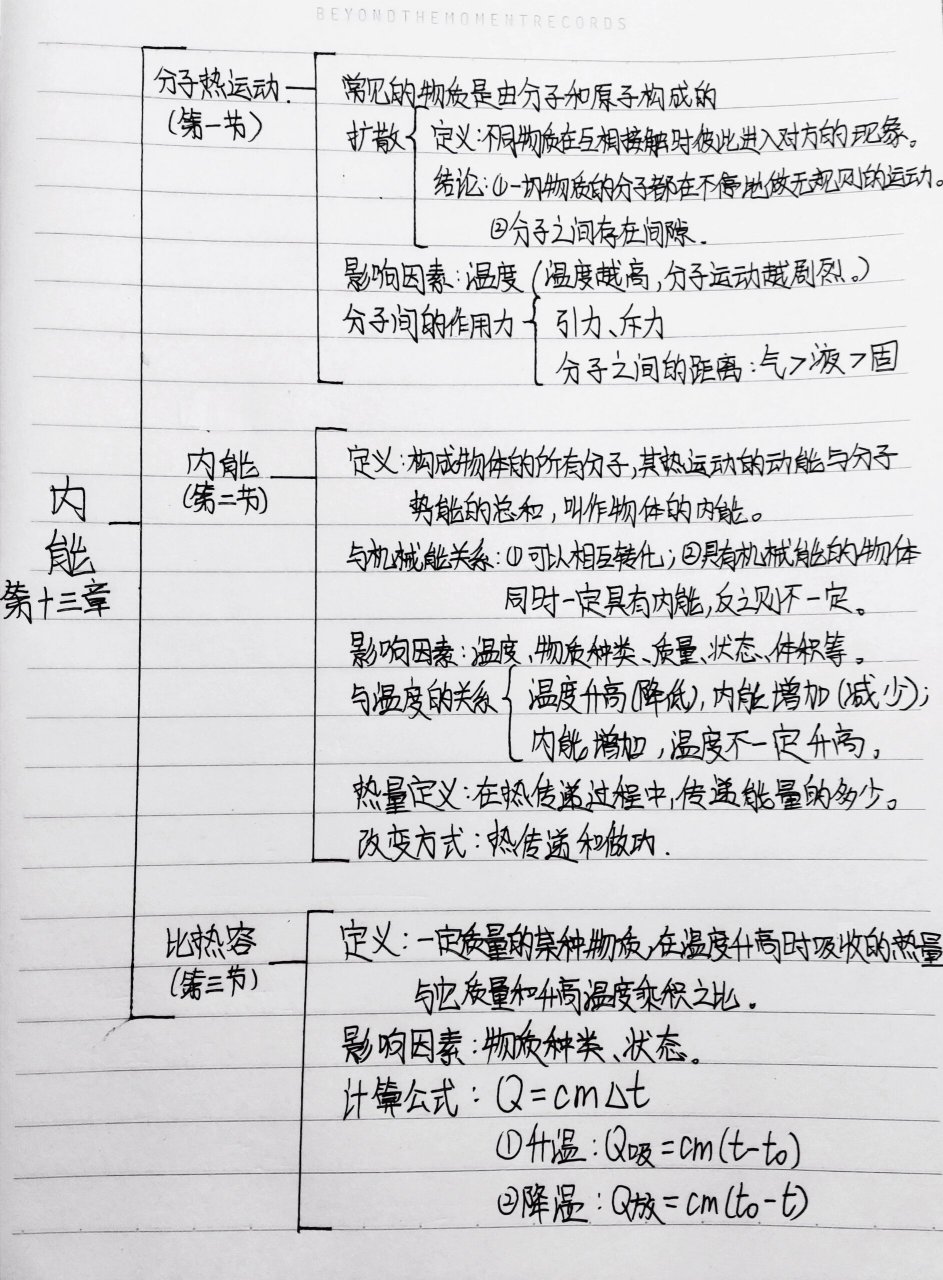 BEYONDTHEMOMENTRECORDS
内能
第十三章
分子热运动
(第一节)
常见的物质是由分子和原子构成的
扩散
定义:不同物质在互相接触时彼此进入对方的现象。
结论:①一切物质的分子都在不停地做无规则的运动。
②分子之间存在间隙.
影响因素:温度(温度越高,分子运动越剧烈。)
分子间的作用力
引力、斥力
分子之间的距离:气>液>固
内能
(第二节)
定义:构成物体的所有分子,其热运动的动能与分子
势能的总和,叫作物体的内能。
与机械能关系:①可以相互转化;②具有机械能的物体
同时一定具有内能,反之则不一定。
影响因素:温度、物质种类、质量、状态、体积等。
与温度的关系
温度升高(降低),内能增加(减少);
内能增加,温度不一定升高。
热量定义:在热传递过程中,传递能量的多少。
改变方式:热传递和做功.
比热容
(第三节)
定义:一定质量的某种物质,在温度升高时吸收的热量
与它质量和升高温度乘积之比。
影响因素:物质种类、状态。
计算公式:Q=cm△t
①升温:Q吸=cm(t-t₀)
②降温:Q放=cm(t₀-t)